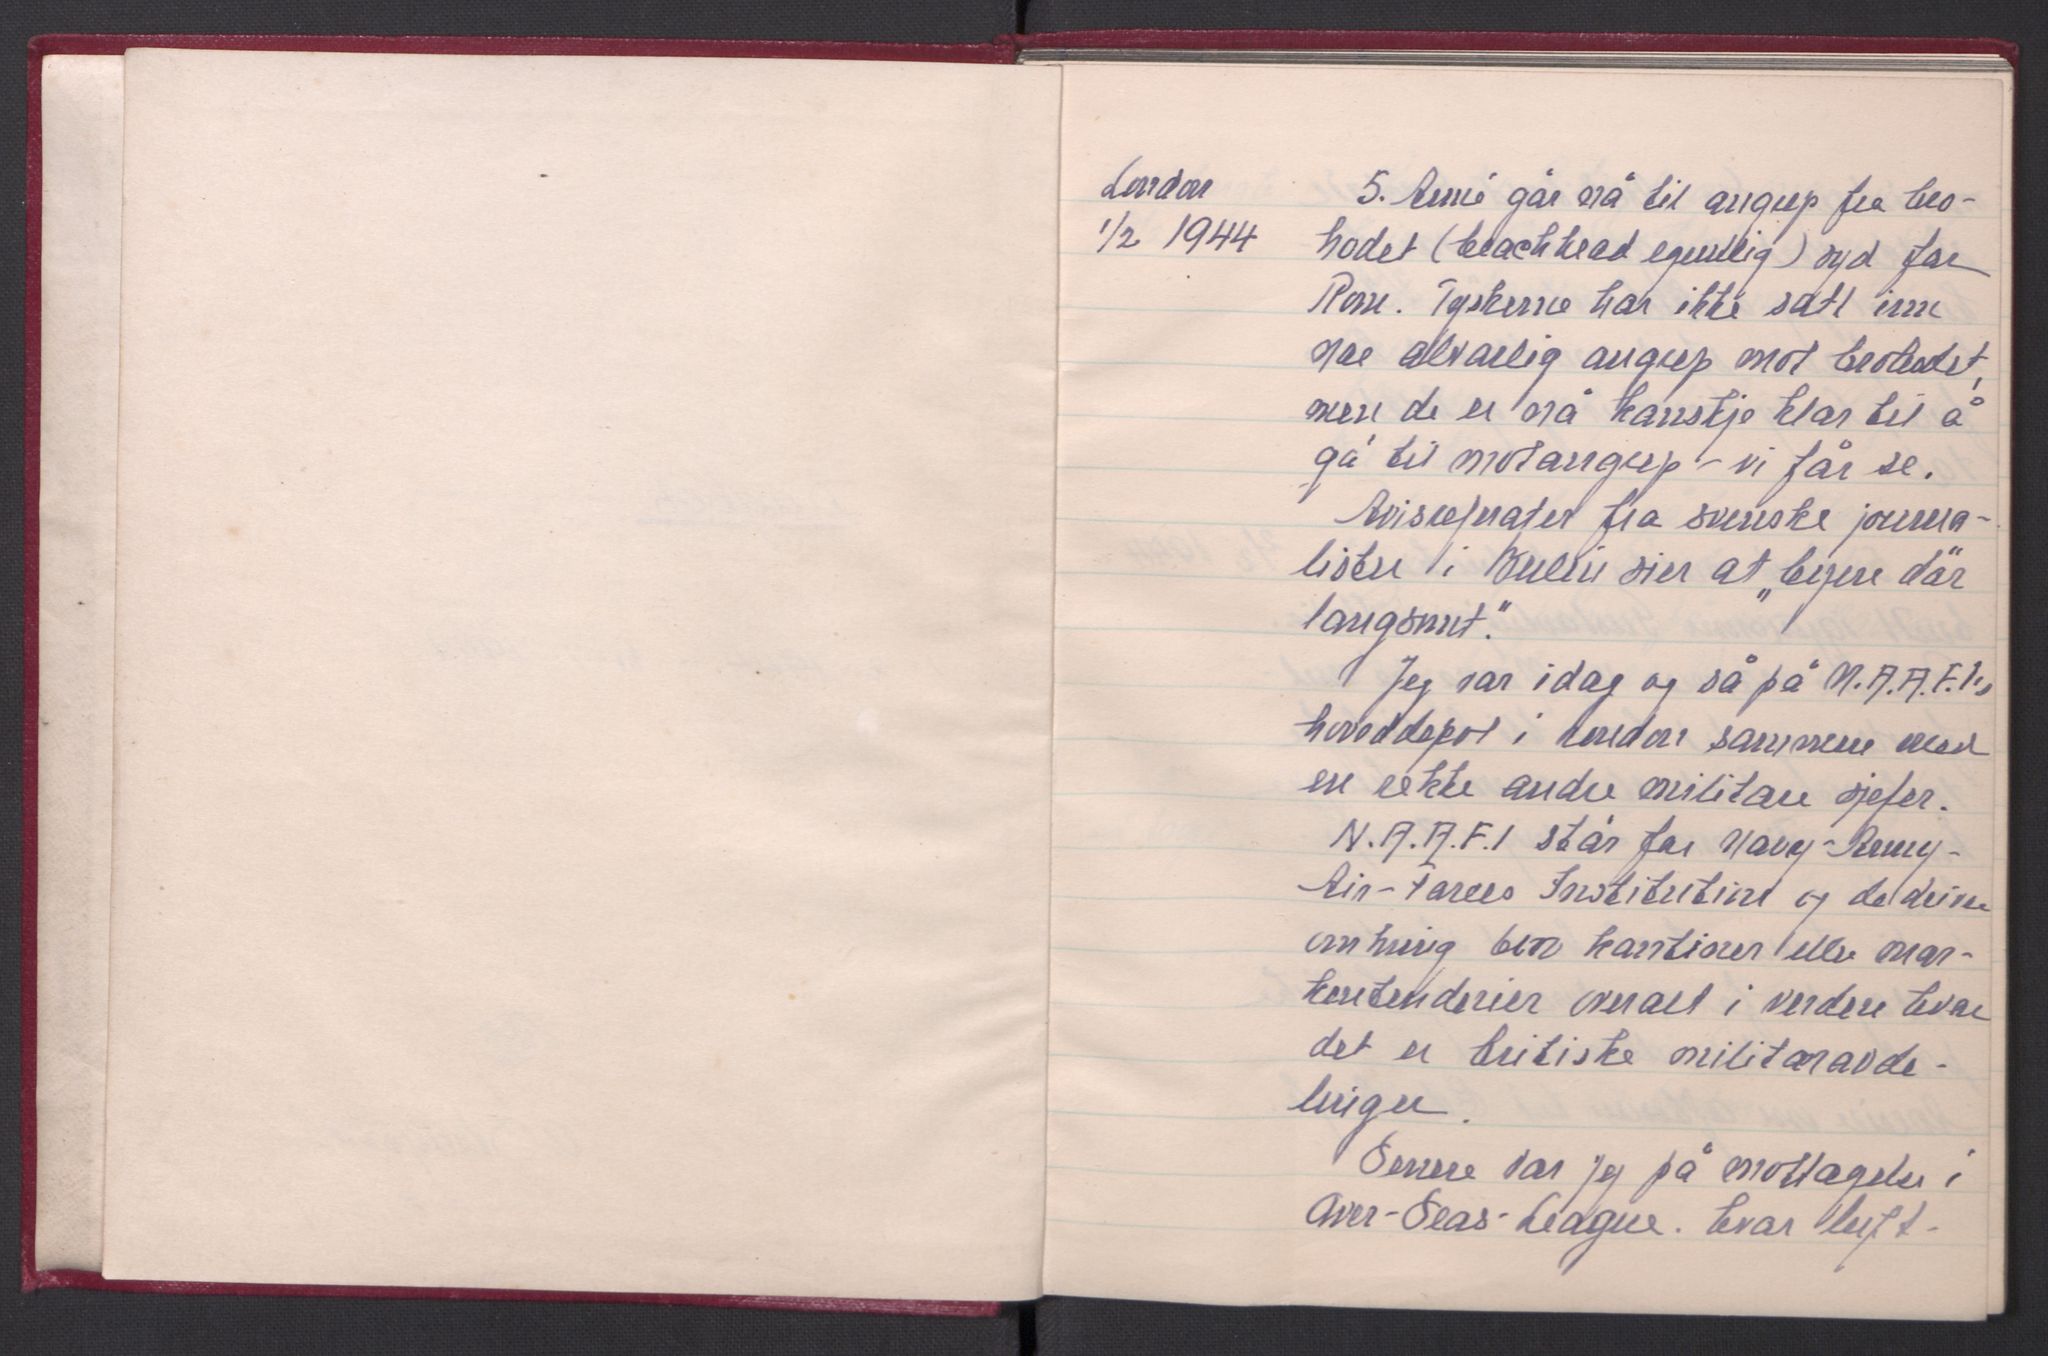 London
1/2 1944
5. Armé går nå til angrep fra bro-
hodet (beachhead egentlig) syd for
Rom. Tyskerne har ikke satt inn
noe alvorlig angrep mot brohodet,
men de er nå kanskje klar til å
gå til motangrep - vi får se.
Avisreferater fra svenske journa-
lister i Berlin sier at „byen dör
langsomt".
Jeg var idag og så på N.A.A.F.I's
hoveddepot i London sammen med
en rekke andre militære sjefer.
N.A.A.F.I står for Navy-Army-
Air-Forces Institution og de driver
omkring kantiner eller mar-
ketenderier overalt i verden hvor
det er britiske militæravde-
linger.
Senere var jeg på mottagelse i
Over-Seas-League. hvor luft-